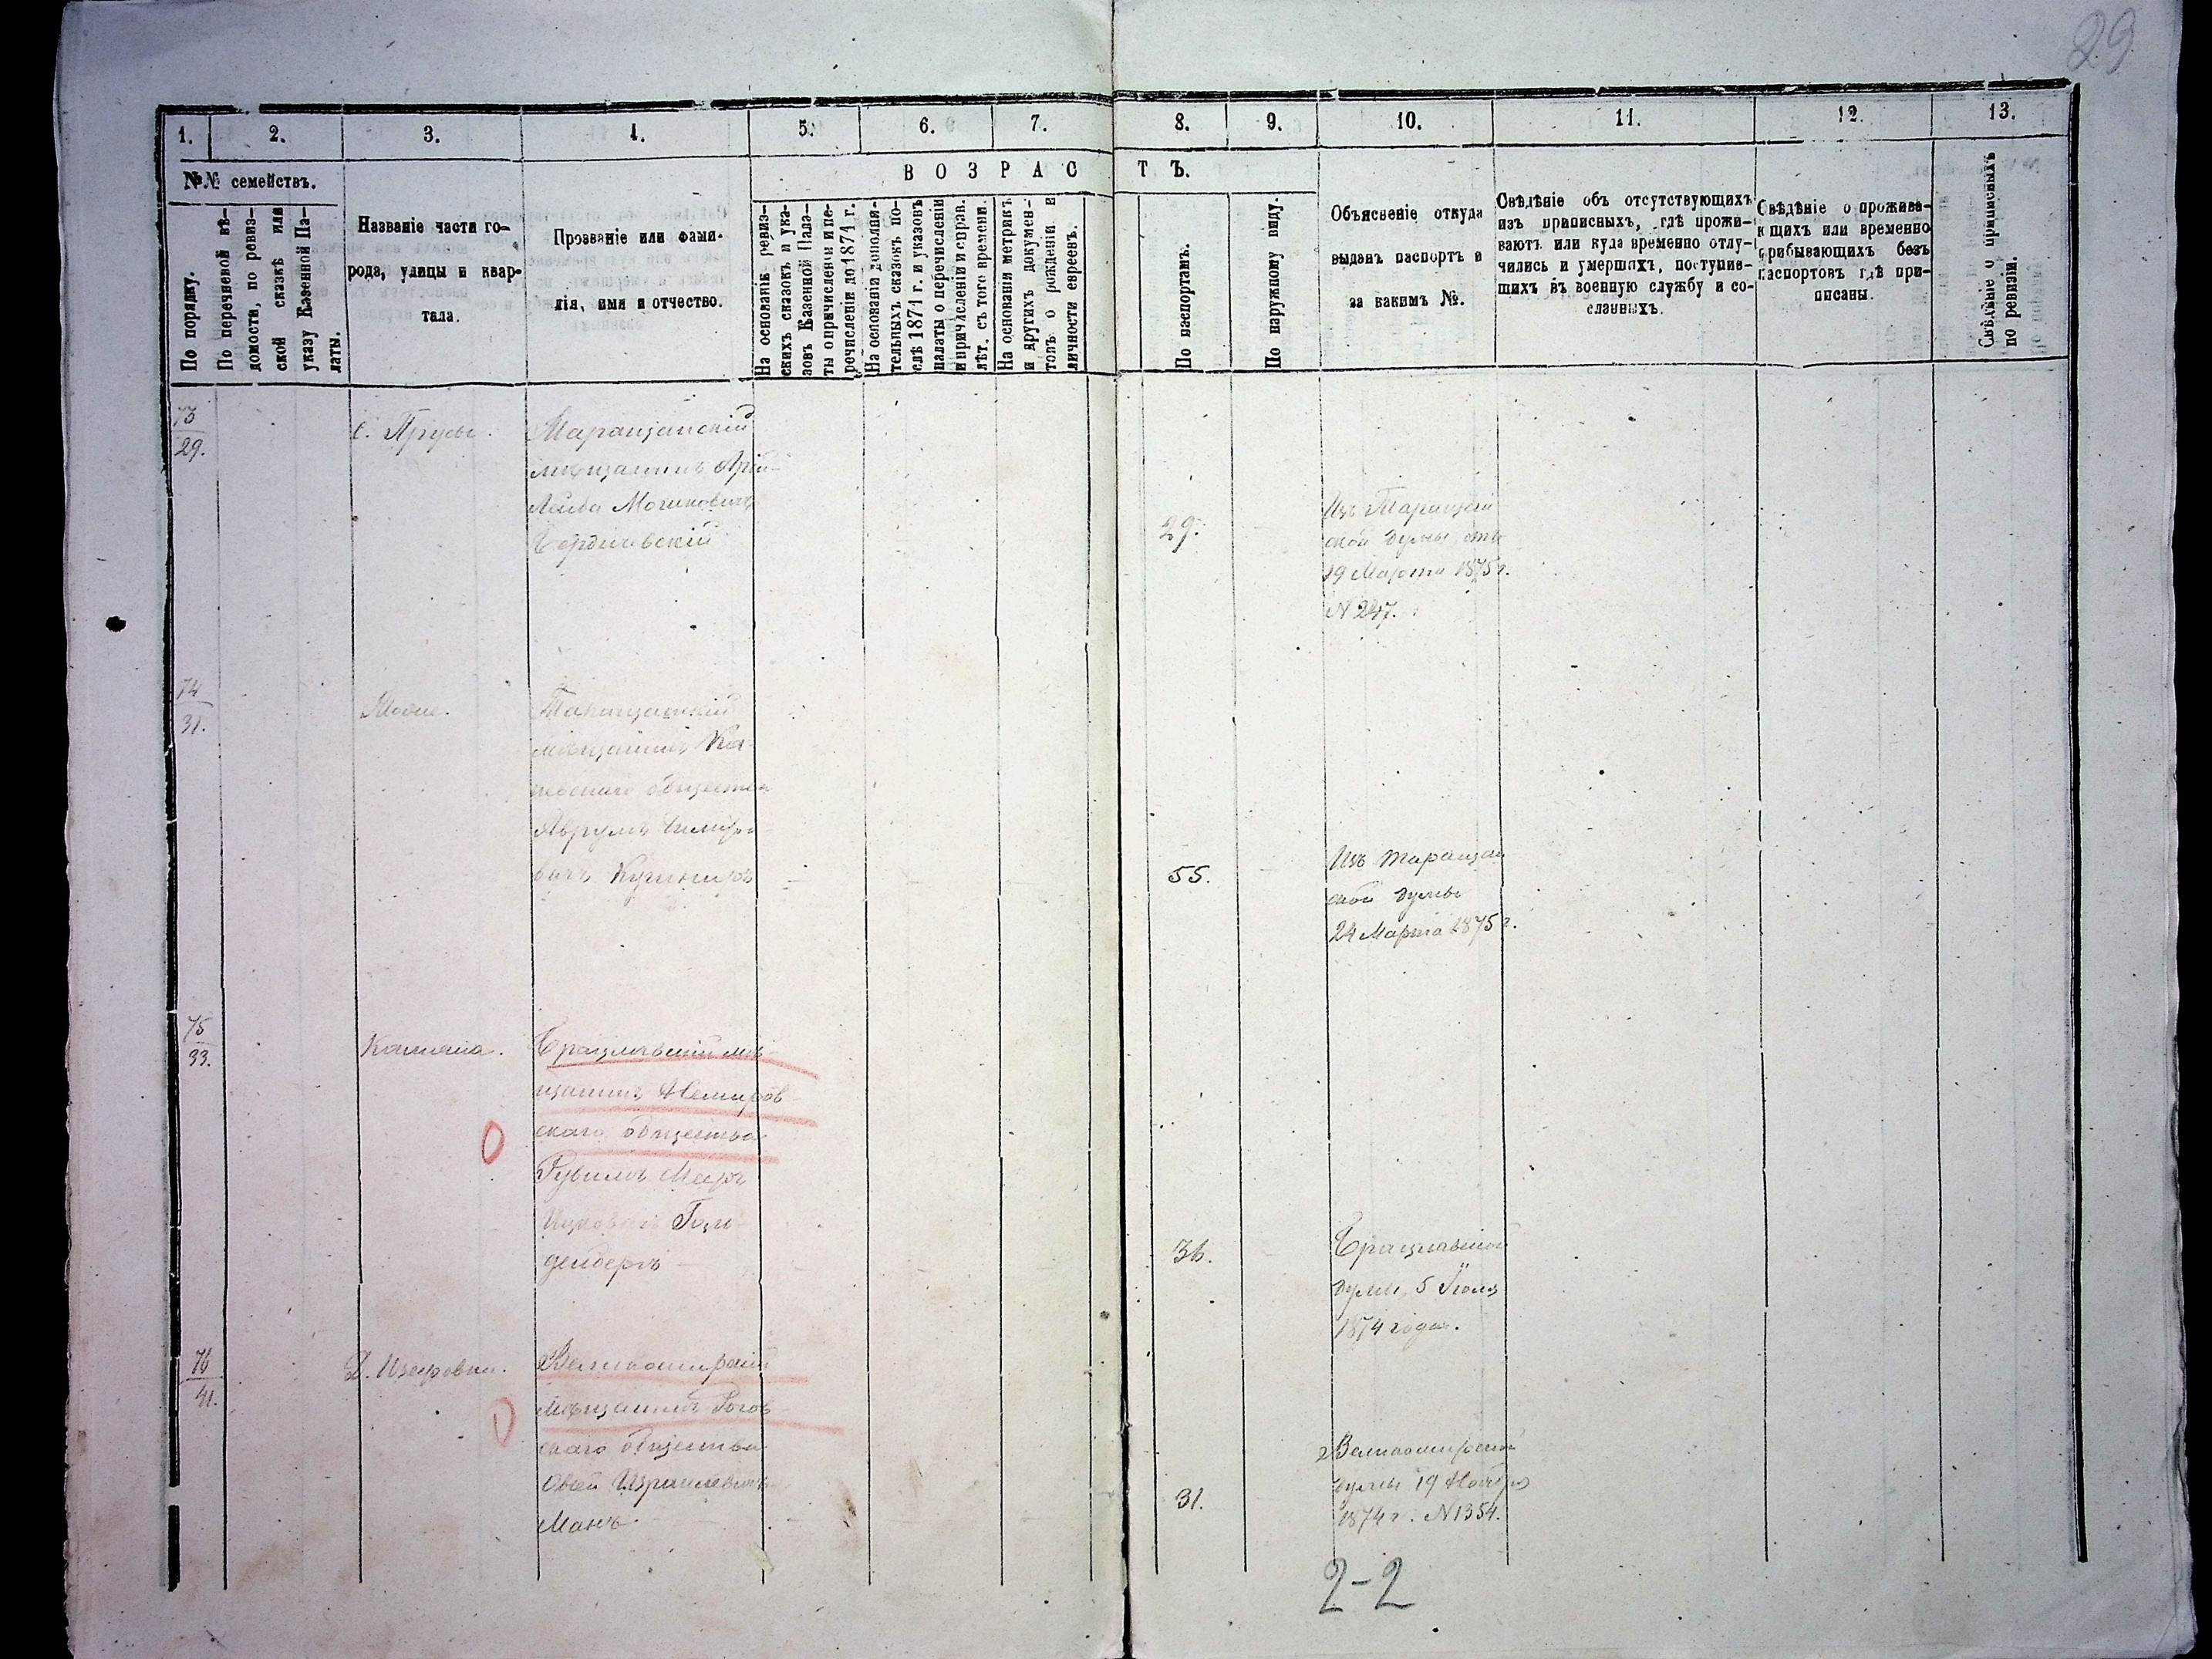 29
1. 2. 3. 4. 5. 6. 7. 8. 9. 10. 11. 12. 13.
№№ семействъ.
По порядку.
По перечневой вѣ-
домости, по ревиз-
ской сказкѣ или
указу Казенной Па-
латы.
Названіе части го-
рода, улицы и квар-
тала.
Прозваніе или фами-
лія, имя и отчество.
ВОЗРАСТЪ.
На основаніи ревиз-
скихъ сказокъ и ука-
зовъ Казенной Пала-
ты о причисленіи и пе-
речисленіи до 1871 г.
На основаніи дополни-
тельныхъ сказокъ по-
слѣ 1871 г. и указовъ
палаты о перечисленіи
и причисленіи и прав.
лѣт. съ того времени.
На основаніи метрикъ
и другихъ докумен-
товъ о рожденіи и
личности евреевъ.
По паспортамъ.
По наружному виду.
Объясненіе откуда
выданъ паспортъ и
за какимъ №.
Свѣдѣніе объ отсутствующихъ
изъ приписныхъ, гдѣ прожи-
ваютъ или куда временно отлу-
чились и умершихъ, поступив-
шихъ въ военную службу и со-
сланныхъ.
Свѣдѣніе о прожива-
ющихъ или временно
прибывающихъ безъ
паспортовъ гдѣ при-
писаны.
Свѣдѣніе о приписныхъ
по ревизіи.
73
29.
С. Прусы.
Таращанскій
мѣщанинъ
Лейба Мошковичъ
Бердичевскій
29.
Изъ Таращан
ской думы отъ
19 Марта 1875 г.
N 247.
74
31.
Таращанскій
мѣщанинъ
общества
Аврумъ
вичъ Кушниръ
55.
Изъ таращан
ской думы
24 Марта 1875 г.
75
33.
Брацлавскій мѣ
щанинъ Немиров
скаго общества
Рувимъ Мееръ
Ицковичъ Гол
денбергъ
36.
Брацлавской
думы, 5 Іюля
1874 года.
76
41.
мѣщанинъ
скаго общества
Овсей Израилевичъ
Манъ
31.
думы 19 Ноября
1874 г. N 1354.
2-2